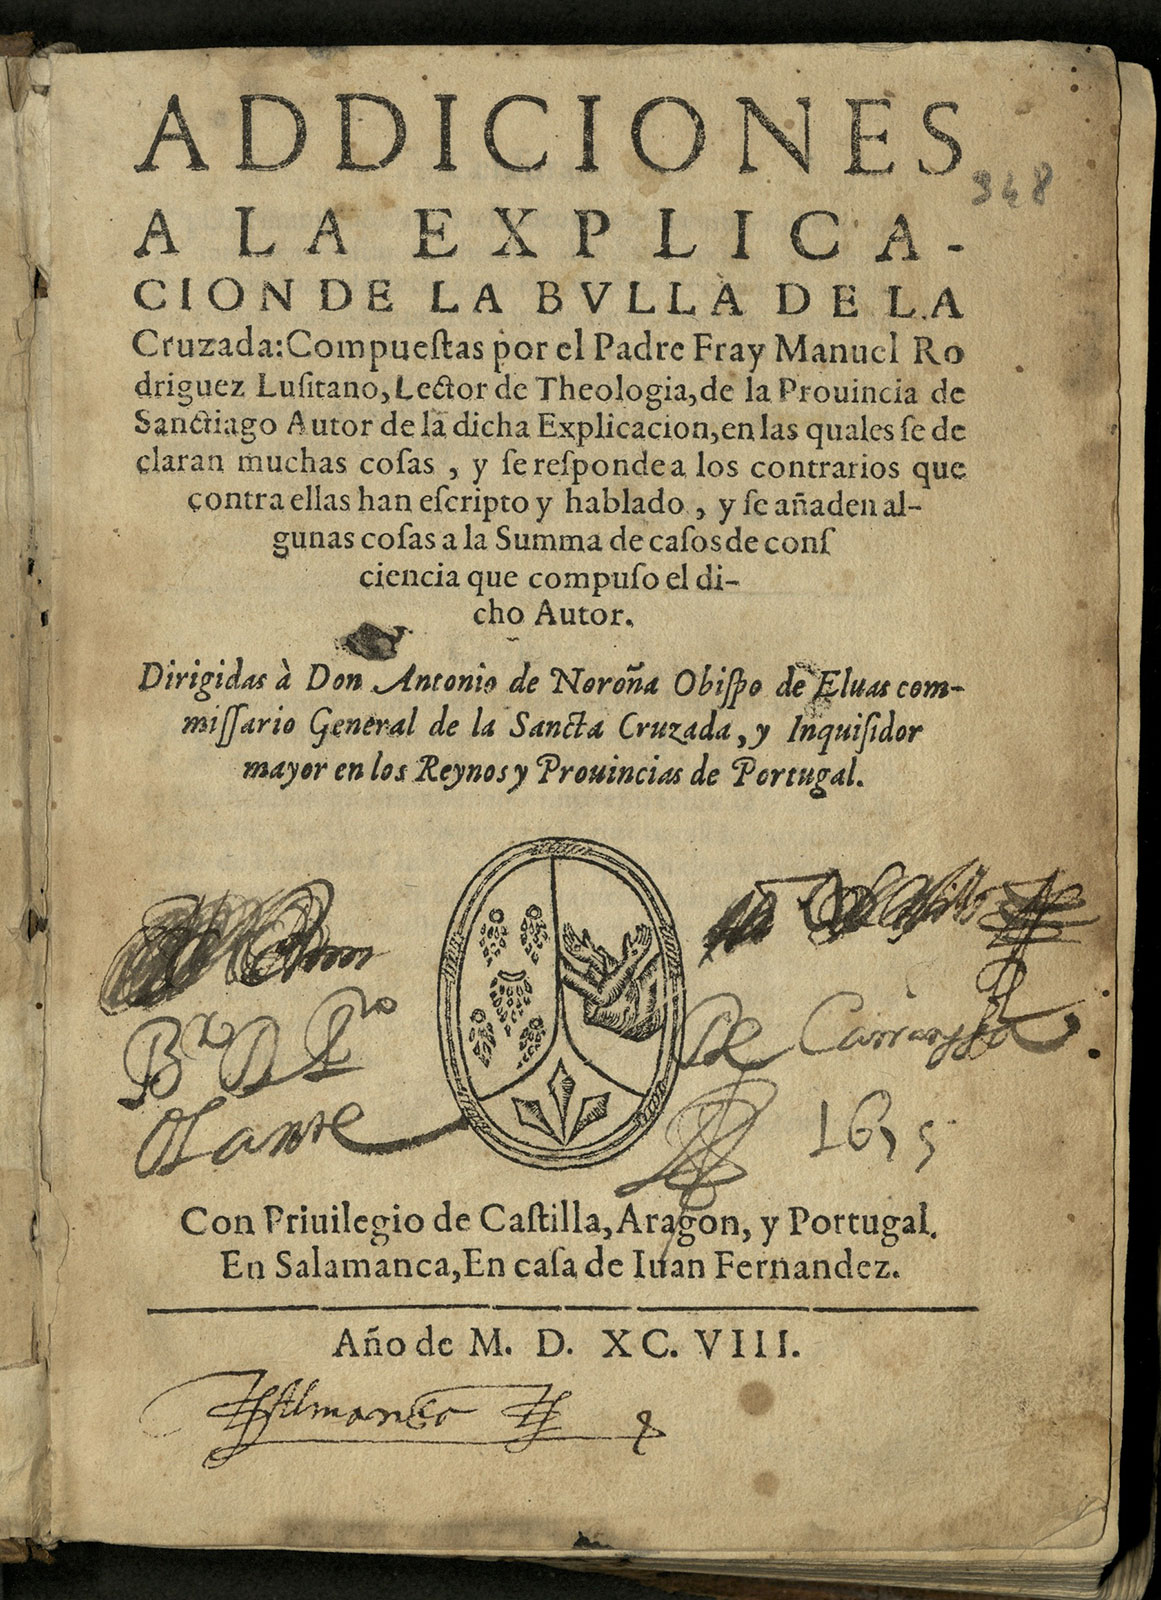 ADDICIONES
948
A LA EXPLICA-
CION DE LA BVLLA DE LA
Cruzada: Compueſtas por el Padre Fray Manuel Ro
driguez Luſitano, Lector de Theologia, de la Prouincia de
Sanctiago Autor de la dicha Explicacion, en las quales ſe de
claran muchas coſas, y ſe reſponde a los contrarios que
contra ellas han eſcripto y hablado, y ſe añaden al-
gunas coſas a la Summa de caſos de conſ
ciencia que compuſo el di-
cho Autor.
Dirigidas à Don Antonio de Noroña Obiſpo de Eluas com-
miſſario General de la Sancta Cruzada, y Inquiſidor
mayor en los Reynos y Prouincias de Portugal.
Br D P
de
Olante
1635
Con Priuilegio de Caſtilla, Aragon, y Portugal.
En Salamanca, En caſa de Iuan Fernandez.
Año de M. D. XC. VIII.